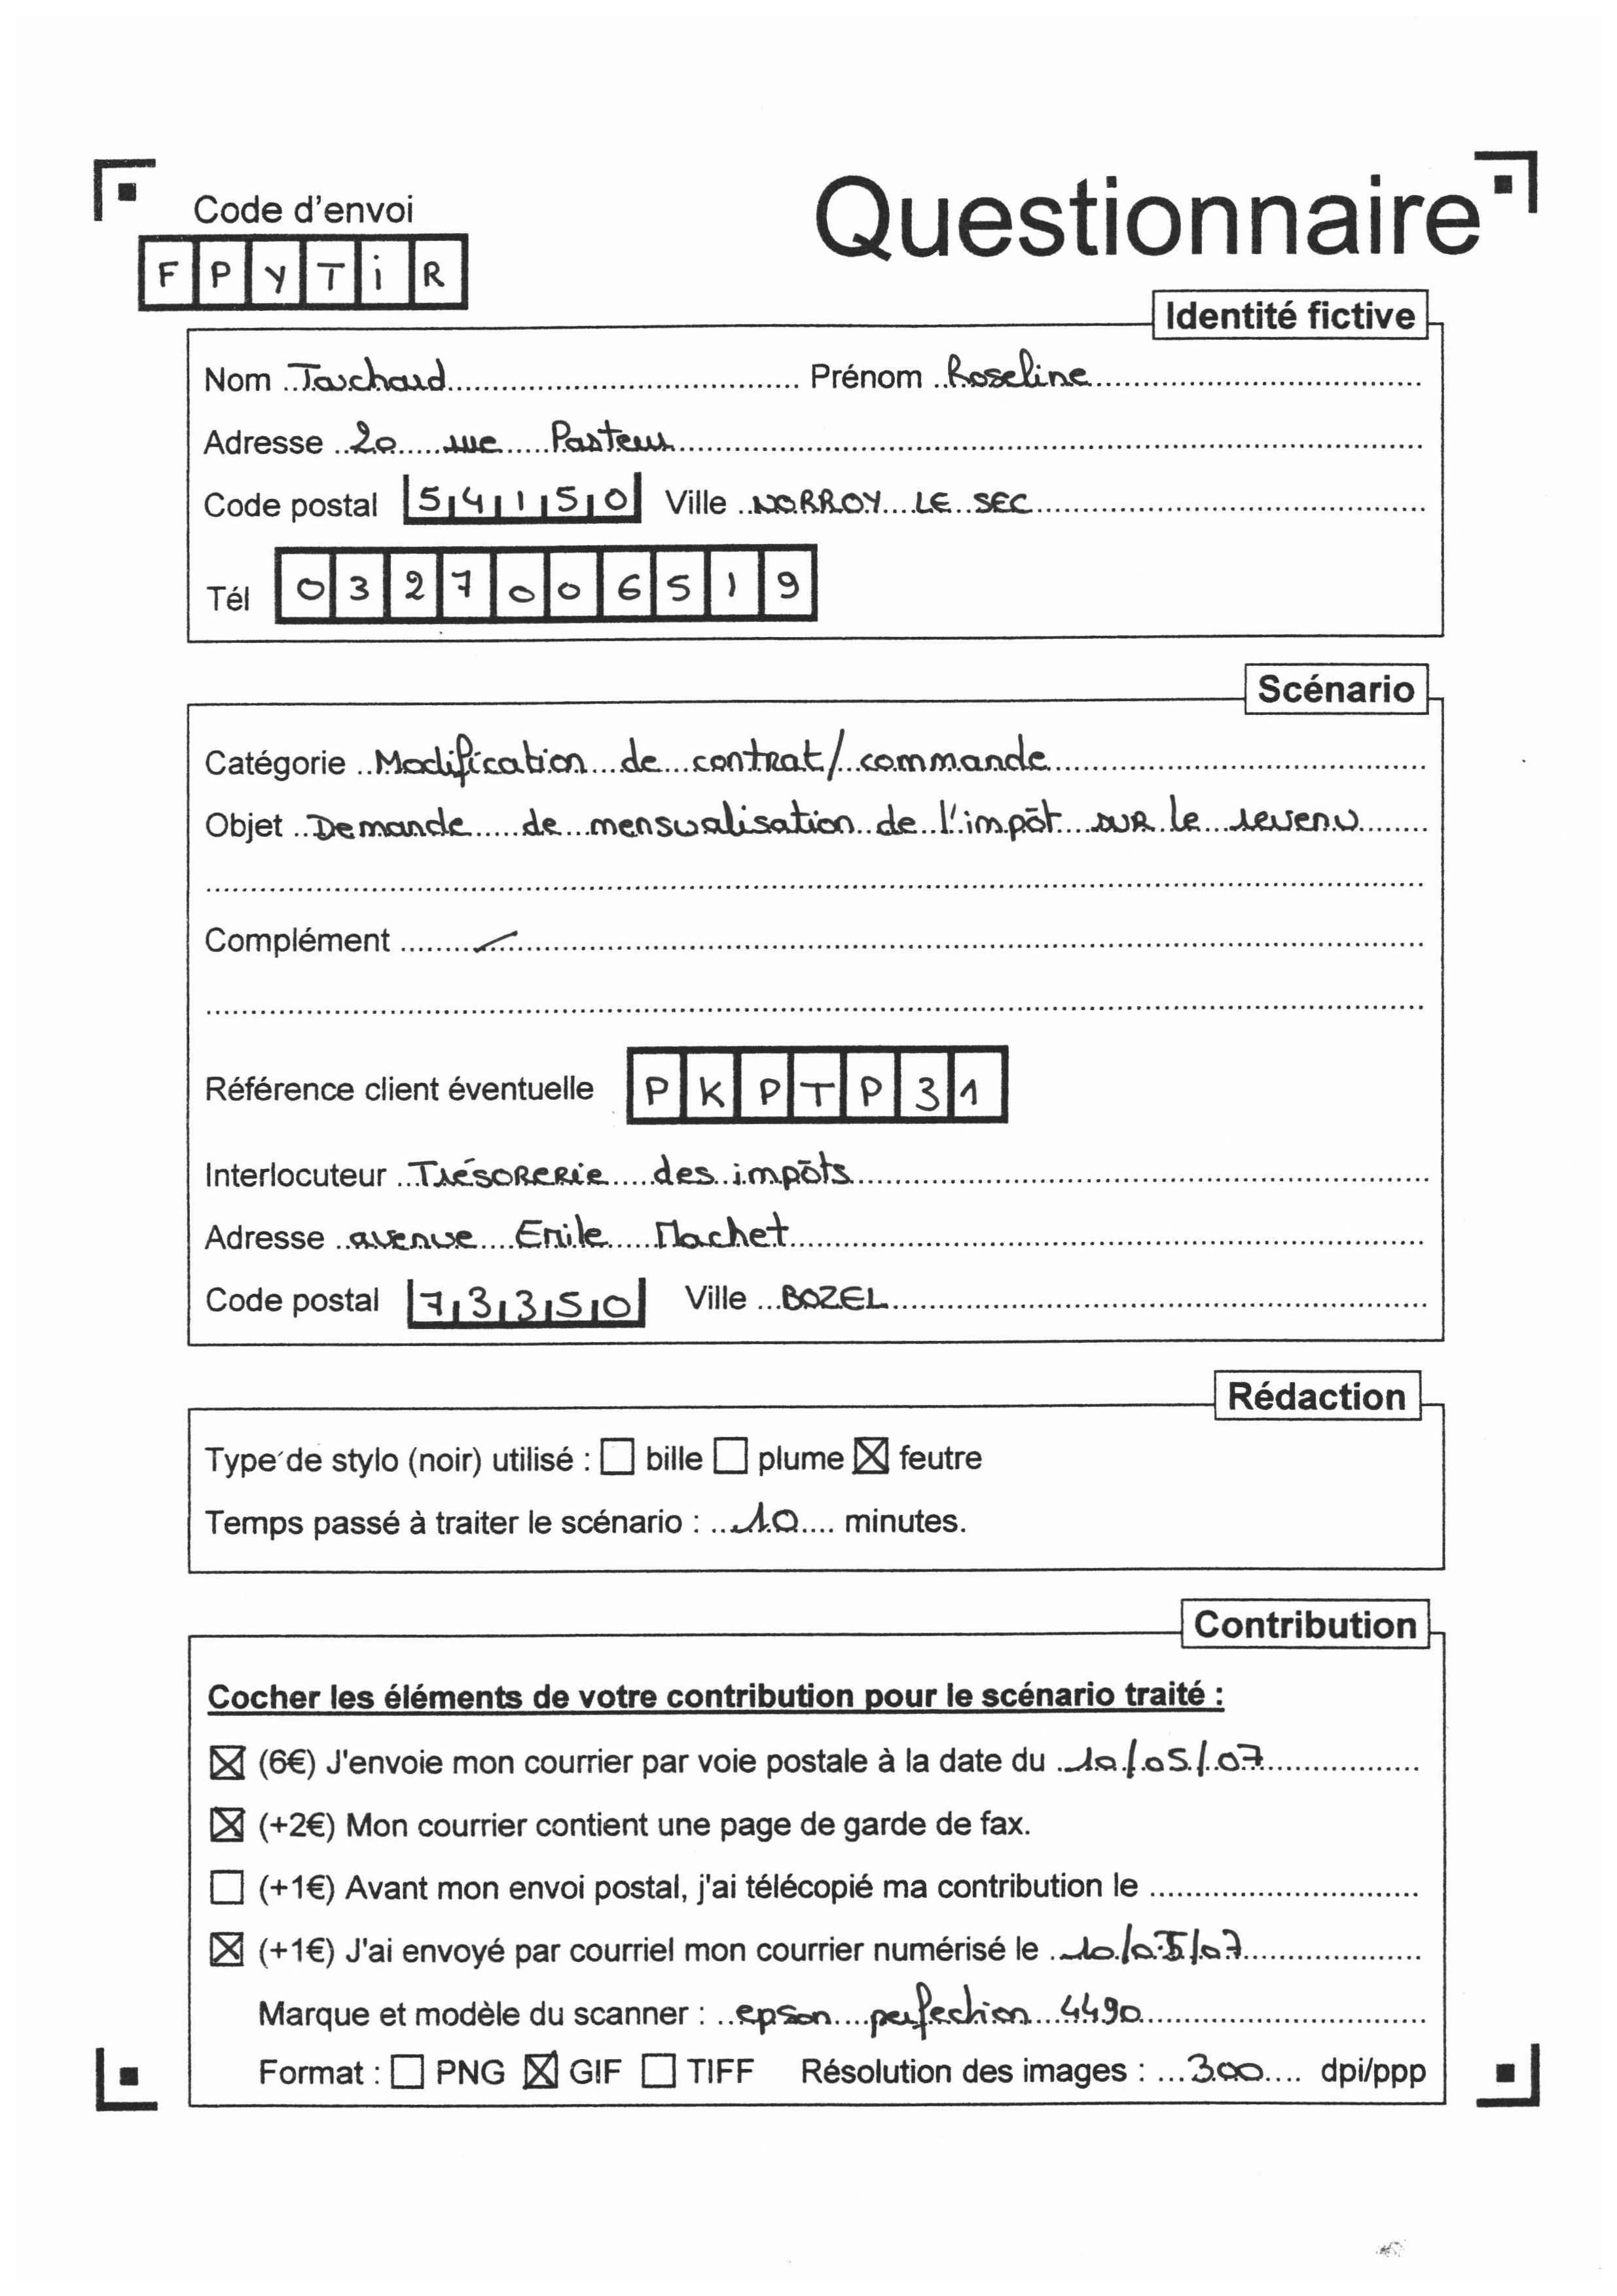 Code d'envoi
Questionnaire
FPYTiR
Identité fictive
Nom Taschard Prénom Roseline
Adresse 20 rue Pasteur
Code postal 54150 Ville NORROY LE SEC
Tél 0327006519
Scénario
Catégorie Modification de contrat/commande
Objet Demande de mensualisation de l'impôt sur le revenu
Complément
Référence client éventuelle PKPTP31
Interlocuteur Trésorerie des impôts
Adresse avenue Emile Machet
Code postal 73350 Ville BOZEL
Rédaction
Type de stylo (noir) utilisé : ☐ bille ☐ plume ☒ feutre
Temps passé à traiter le scénario : 10 minutes.
Contribution
Cocher les éléments de votre contribution pour le scénario traité :
☒ (6€) J'envoie mon courrier par voie postale à la date du 10/05/07
☒ (+2€) Mon courrier contient une page de garde de fax.
☐ (+1€) Avant mon envoi postal, j'ai télécopié ma contribution le
☒ (+1€) J'ai envoyé par courriel mon courrier numérisé le 10/05/07
Marque et modèle du scanner : epson perfection 4490
Format : ☐ PNG ☒ GIF ☐ TIFF Résolution des images : 300 dpi/ppp